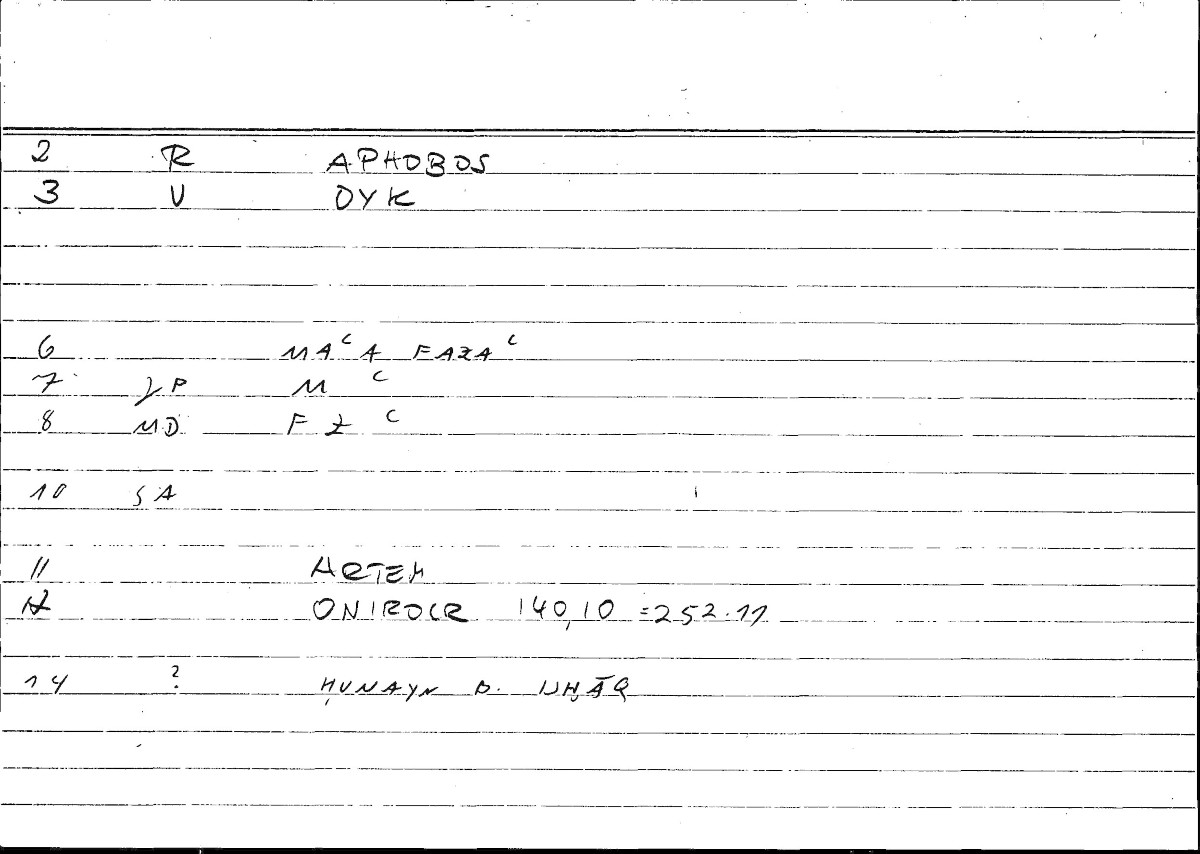 2 R APHOBOS
3 V OYK
6 MAᶜA FAZAᶜ
7 JP M ᶜ
8 MD F Z ᶜ
10 SA
11 ARTEM
12 ONIROCR 140,10 = 252.11
14 ? ḤUNAYN B. ISḤĀQ